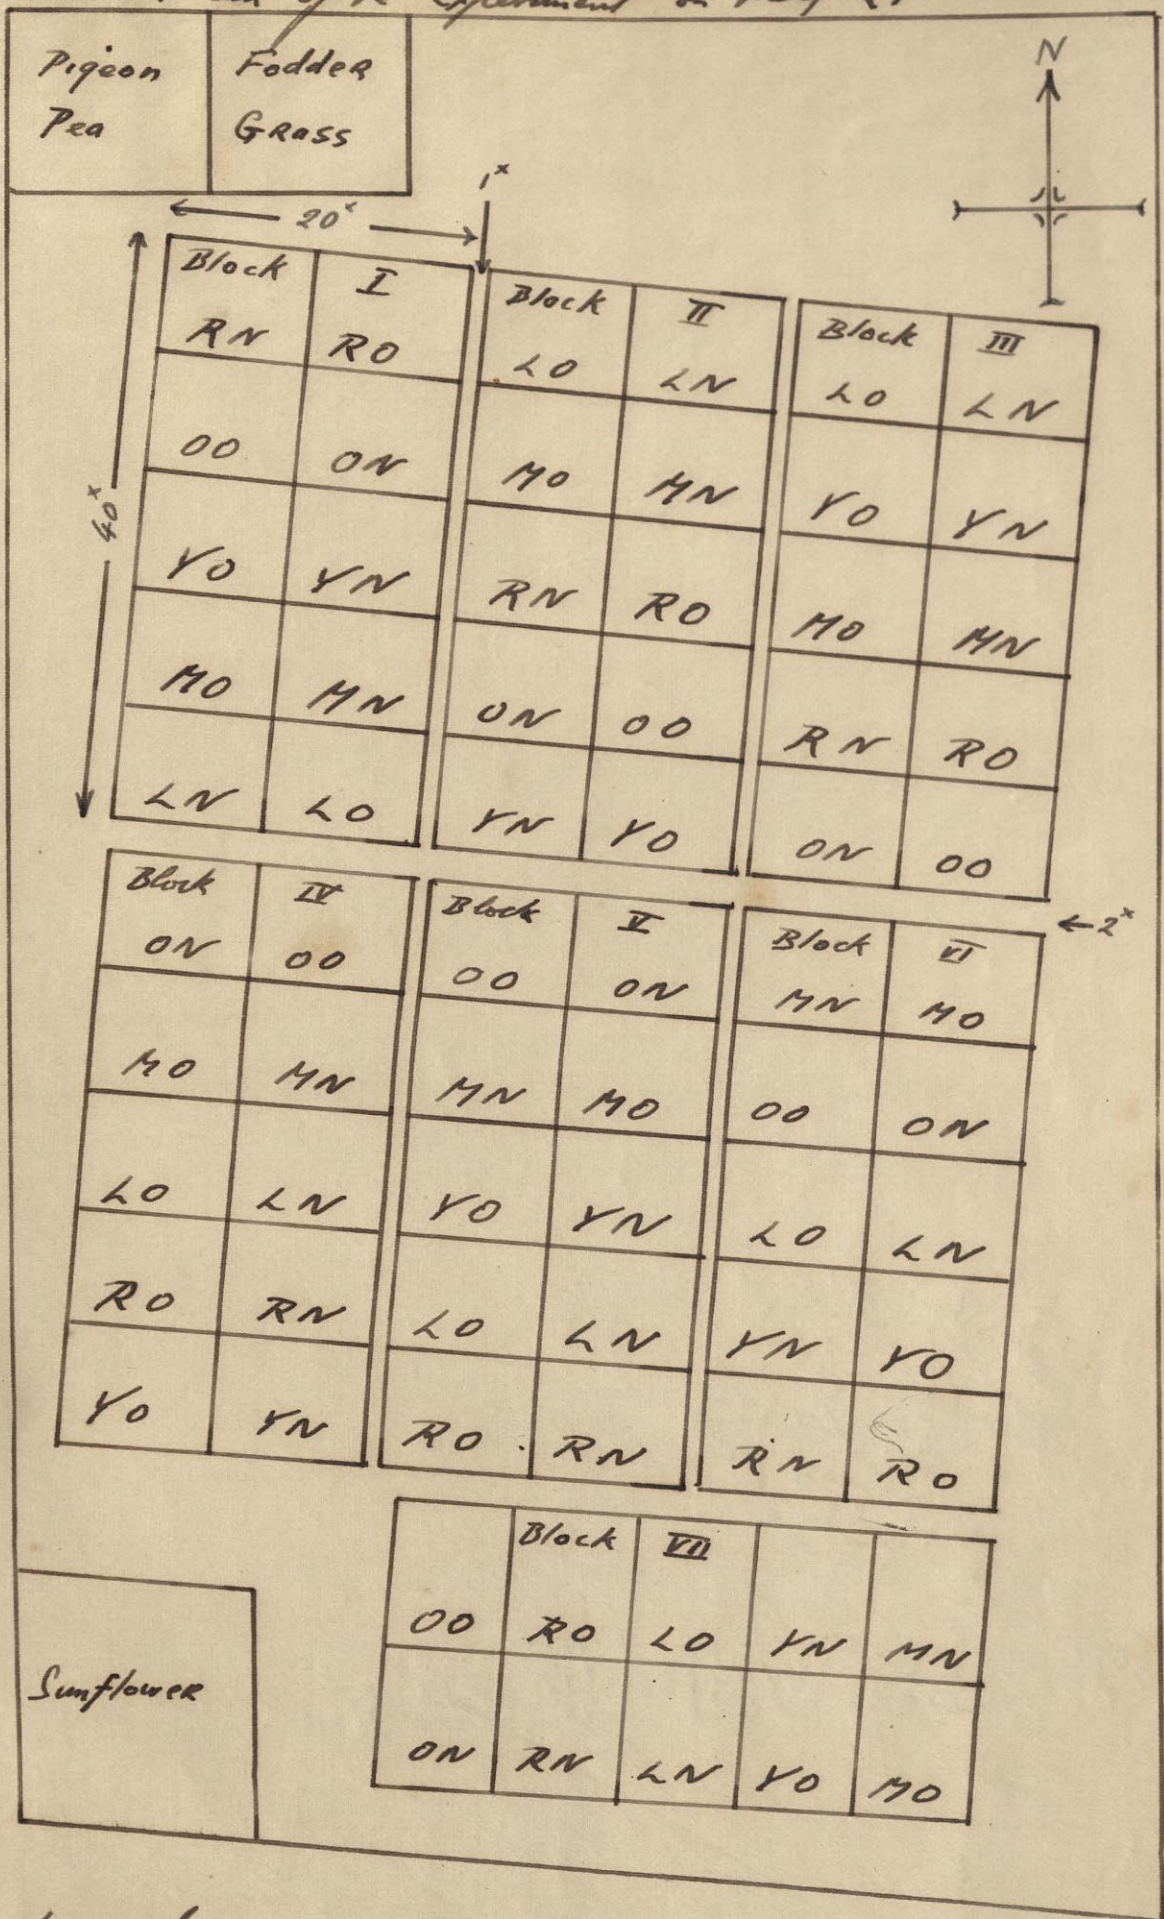 Pigeon Pea
Fodder Grass
N
1ˣ
20ˣ
40ˣ
Block I
RN RO
OO ON
YO YN
MO MN
LN LO
Block II
LO LN
MO MN
RN RO
ON OO
YN YO
Block III
LO LN
YO YN
MO MN
RN RO
ON OO
←2ˣ
Block IV
ON OO
MO MN
LO LN
RO RN
YO YN
Block V
OO ON
MN MO
YO YN
LO LN
RO RN
Block VI
MN MO
OO ON
LO LN
YN YO
RN RO
Block VII
OO RO LO YN MN
ON RN LN YO MO
Sunflower